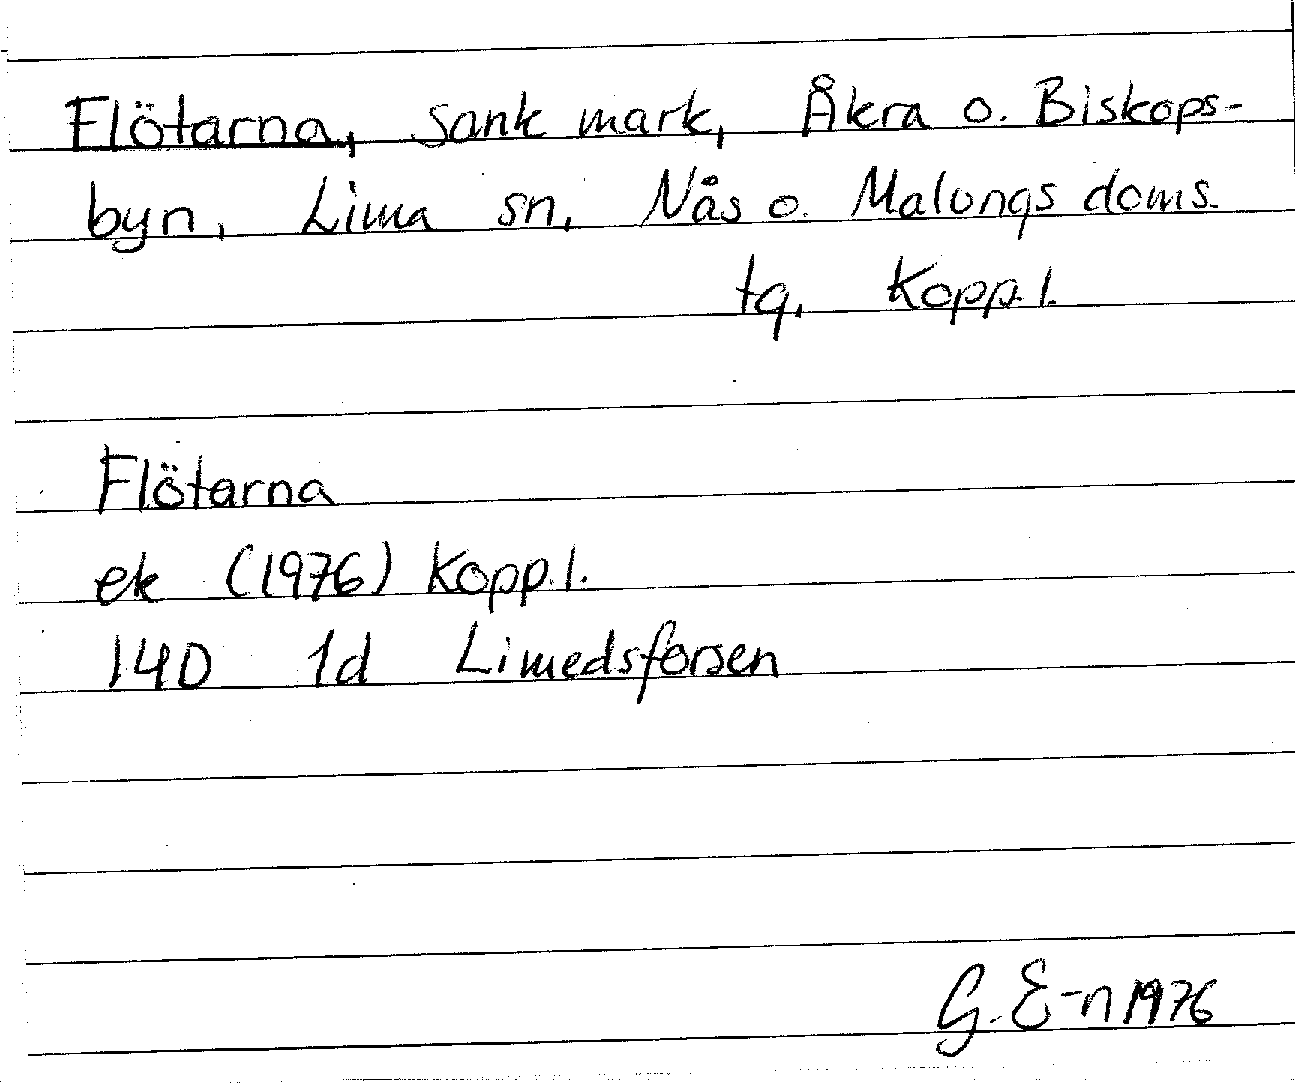 Flötarna, sank mark, Åkra o. Biskops-
byn, Lima sn, Nås o. Malungs doms.
tg, Kopp.l.
Flötarna
ek (1976) Kopp.l.
14D 1d Limedsforsen
G. E-n 1976